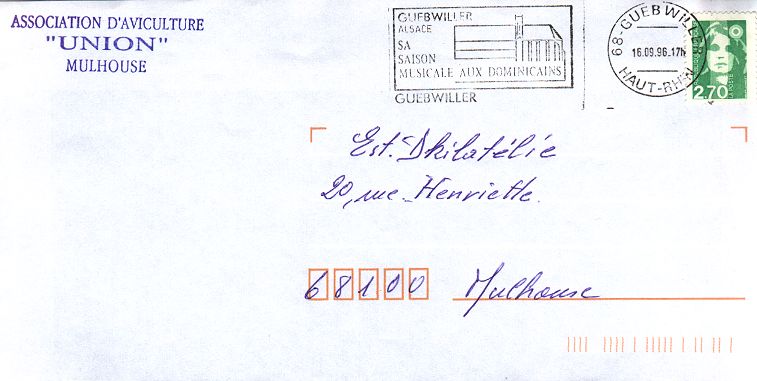 ASSOCIATION D'AVICULTURE
"UNION"
MULHOUSE
GUEBWILLER
ALSACE
SA
SAISON
MUSICALE AUX DOMINICAINS
GUEBWILLER
68-GUEBWILLER
16.09.96.17h
HAUT-RHIN
2,70
LA POSTE
Est. Dkilatélie
20, rue Henriette
68100 Mulhouse